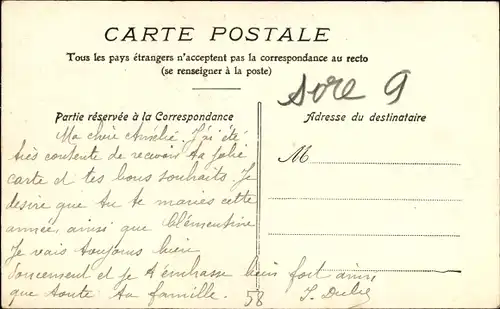 CARTE POSTALE
Tous les pays étrangers n'acceptent pas la correspondance au recto
(se renseigner à la poste)
Sore 9
Partie réservée à la Correspondance
Adresse du destinataire
M
Ma chère Amélie. J'ai été
très contente de recevoir ta jolie
carte et tes bons souhaits. Je
desire que tu te maries cette
année, ainsi que Clémentine
Je vais toujours bien
doucement et je t'embrasse bien fort ainsi
que toute ta famille.
58